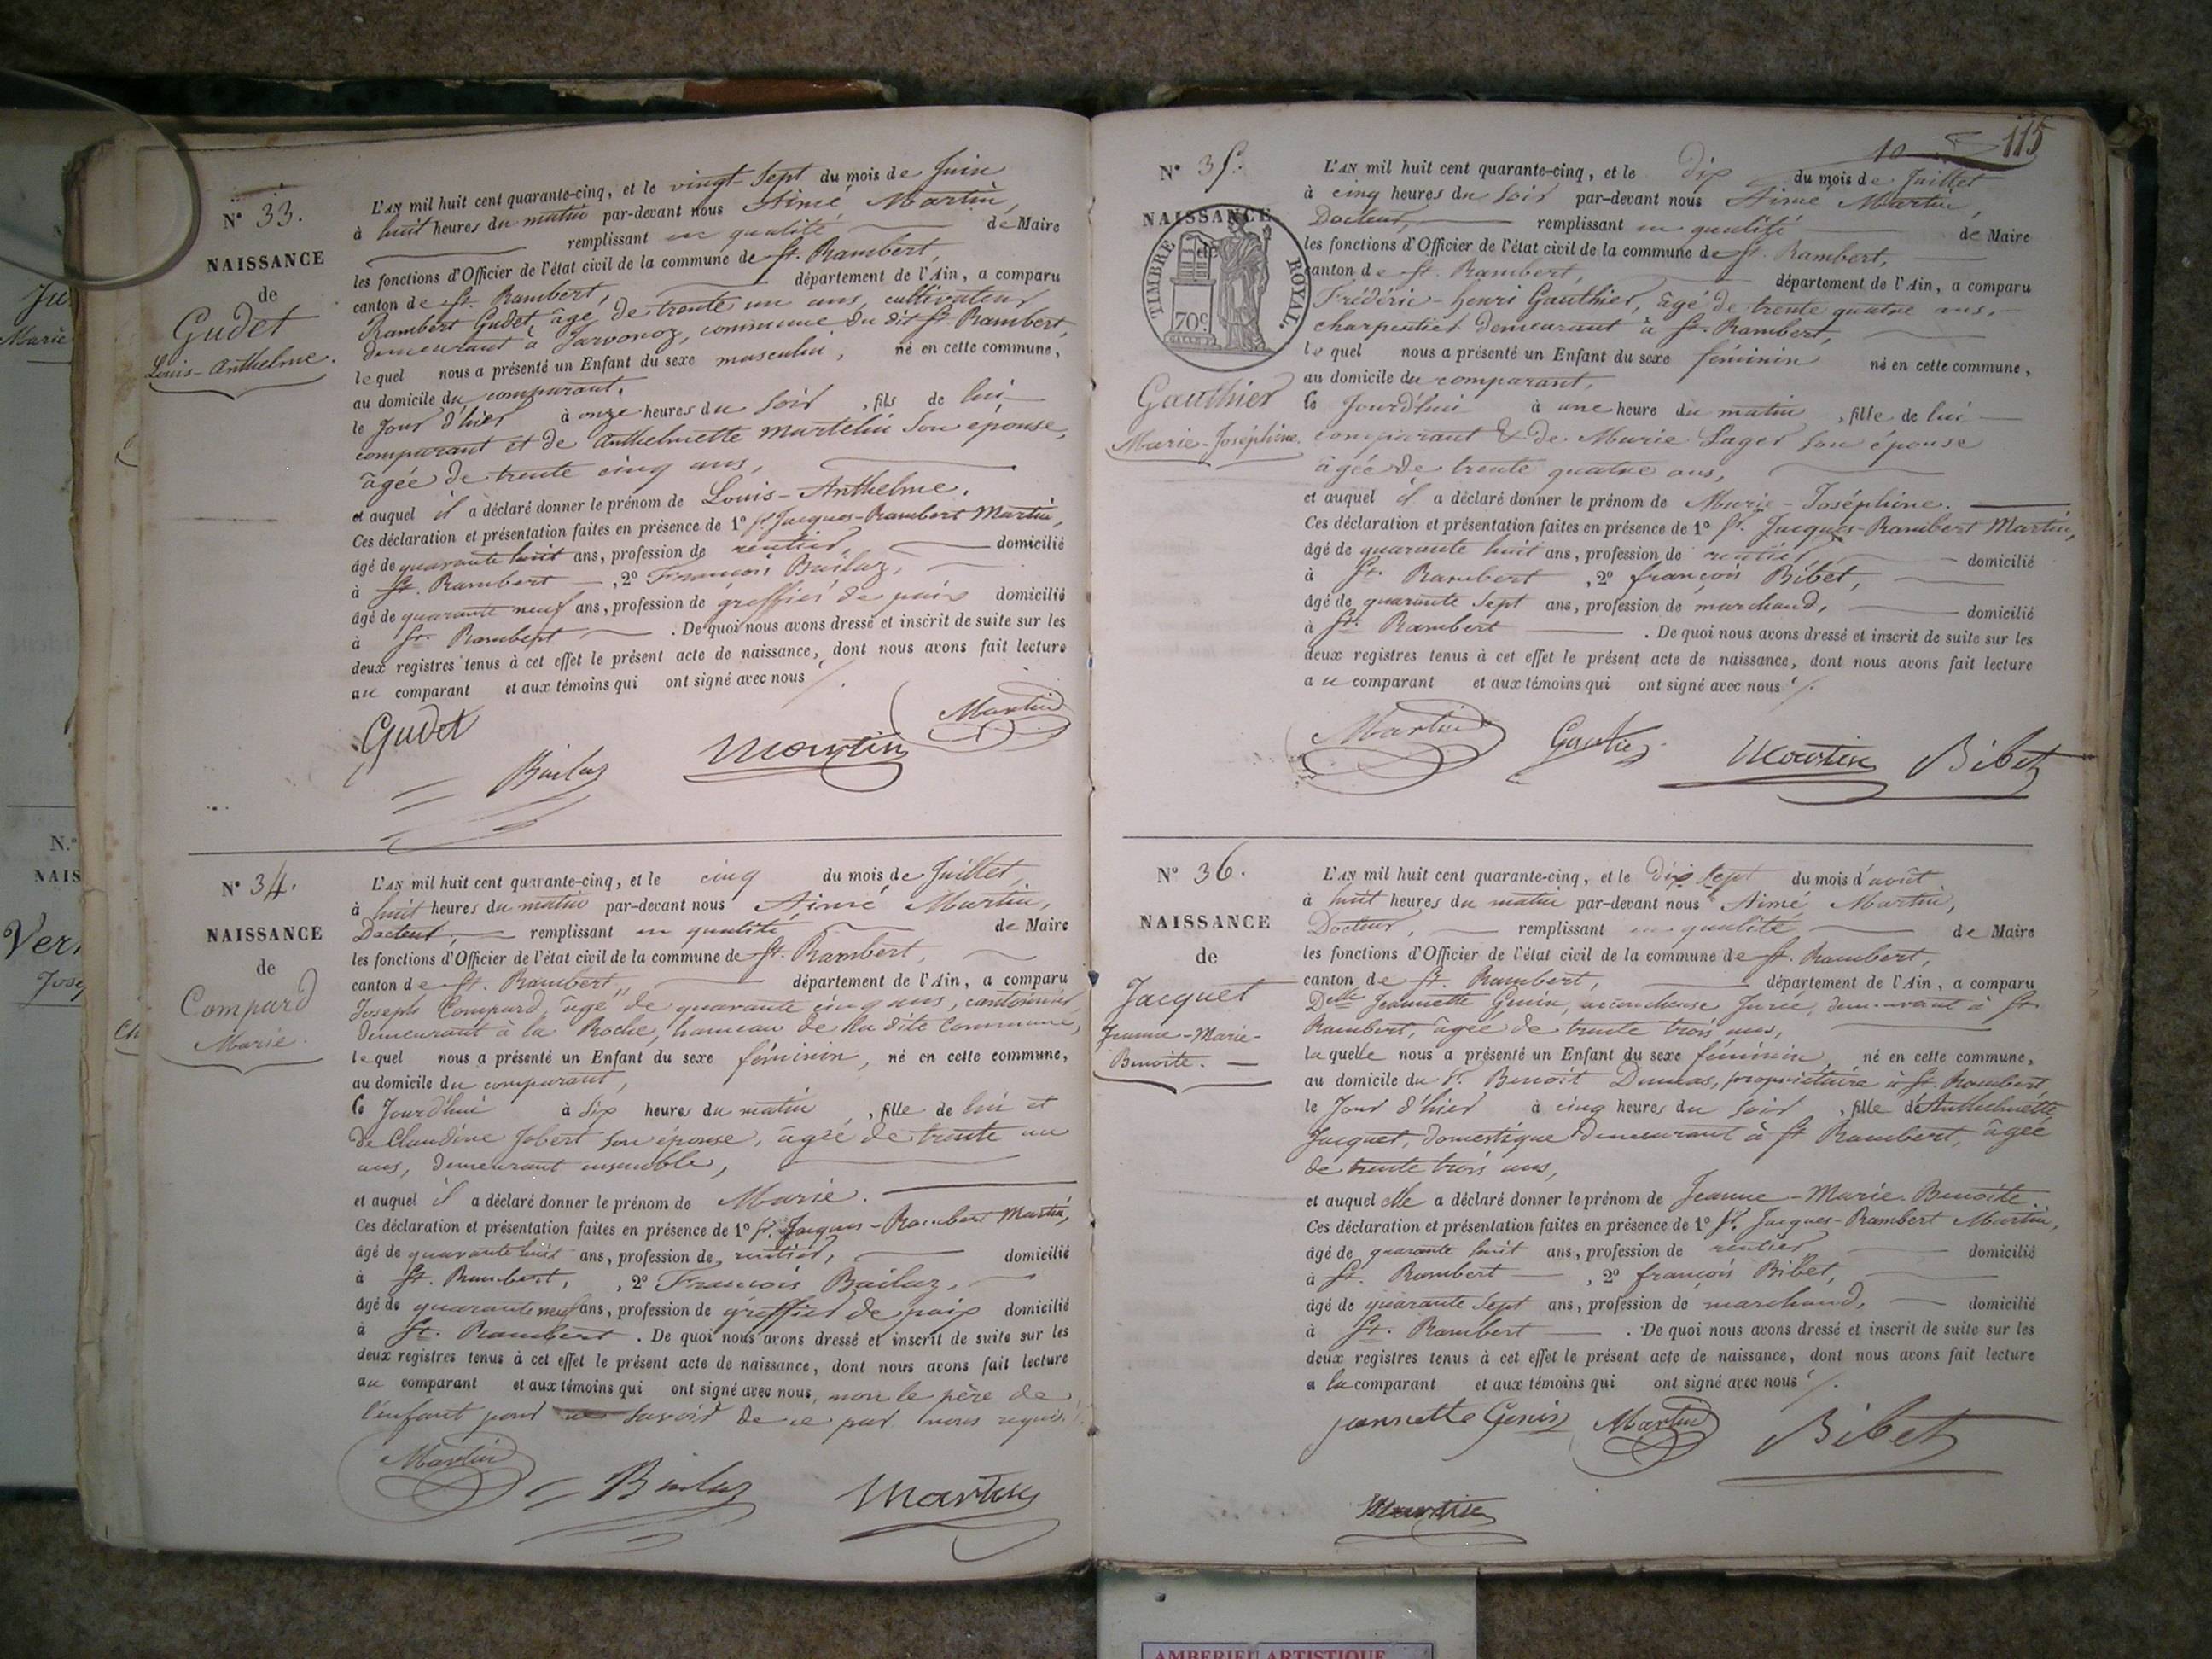 N° 33.
NAISSANCE
de
Gudet
Louis-Anthelme.
L'AN mil huit cent quarante-cinq, et le vingt-sept du mois de Juin
à huit heures du matin par-devant nous Aimé Martin,
remplissant en qualité de Maire
les fonctions d'Officier de l'état civil de la commune de St. Rambert,
canton de St. Rambert, département de l'Ain, a comparu
Rambert Gudet, âgé de trente un ans, cultivateur
demeurant à Javornoz, commune du dit St. Rambert,
lequel nous a présenté un Enfant du sexe masculin, né en cette commune,
au domicile du comparant,
le jour d'hier à onze heures du soir, fils de lui
comparant et de Anthelmette Martelin son épouse,
âgée de trente cinq ans,
et auquel il a déclaré donner le prénom de Louis-Anthelme.
Ces déclaration et présentation faites en présence de 1° Sr. Jacques-Rambert Martin,
âgé de quarante huit ans, profession de rentier, domicilié
à St. Rambert, 2° François Bailaz,
âgé de quarante neuf ans, profession de greffier de paix domicilié
à St. Rambert. De quoi nous avons dressé et inscrit de suite sur les
deux registres tenus à cet effet le présent acte de naissance, dont nous avons fait lecture
au comparant et aux témoins qui ont signé avec nous
Gudet
Martin
Bailaz
Martin
N° 34.
NAISSANCE
de
Compard
Marie.
L'AN mil huit cent quarante-cinq, et le cinq du mois de Juillet,
à huit heures du matin par-devant nous Aimé Martin,
Docteur, remplissant en qualité de Maire
les fonctions d'Officier de l'état civil de la commune de St. Rambert,
canton de St. Rambert, département de l'Ain, a comparu
Joseph Compard, âgé de quarante cinq ans, cantonnier,
demeurant à la Roche, hameau de la dite Commune,
lequel nous a présenté un Enfant du sexe féminin, né en cette commune,
au domicile du comparant,
le Jourd'hui à six heures du matin, fille de lui et
de Claudine Jobert son épouse, âgée de trente un
ans, demeurant ensemble,
et auquel il a déclaré donner le prénom de Marie.
Ces déclaration et présentation faites en présence de 1° Sr. Jacques-Rambert Martin,
âgé de quarante huit ans, profession de rentier, domicilié
à St. Rambert, 2° François Bailaz,
âgé de quarante neuf ans, profession de greffier de paix domicilié
à St. Rambert. De quoi nous avons dressé et inscrit de suite sur les
deux registres tenus à cet effet le présent acte de naissance, dont nous avons fait lecture
au comparant et aux témoins qui ont signé avec nous, non le père de
l'enfant pour ne savoir de ce par nous requis
Martin
Bailaz
Martin
10
115
N° 35.
NAISSANCE
de
TIMBRE ROYAL.
70c.
Gauthier
Marie-Joséphine.
L'AN mil huit cent quarante-cinq, et le dix du mois de Juillet
à cinq heures du soir par-devant nous Aimé Martin,
Docteur, remplissant en qualité de Maire
les fonctions d'Officier de l'état civil de la commune de St. Rambert,
canton de St. Rambert, département de l'Ain, a comparu
Frédéric-henri Gauthier, âgé de trente quatre ans,
charpentier demeurant à St. Rambert,
lequel nous a présenté un Enfant du sexe féminin né en cette commune,
au domicile du comparant,
le Jourd'hui à une heure du matin, fille de lui
comparant & de Marie Lager son épouse
âgée de trente quatre ans,
et auquel il a déclaré donner le prénom de Marie-Joséphine.
Ces déclaration et présentation faites en présence de 1° Sr. Jacques-Rambert Martin,
âgé de quarante huit ans, profession de rentier domicilié
à St. Rambert, 2° françois Bibet,
âgé de quarante sept ans, profession de marchand, domicilié
à St. Rambert. De quoi nous avons dressé et inscrit de suite sur les
deux registres tenus à cet effet le présent acte de naissance, dont nous avons fait lecture
au comparant et aux témoins qui ont signé avec nous
Martin
Gautier
Martin
Bibet
N° 36.
NAISSANCE
de
Jacquet
Jeanne-Marie-
Benoite.
L'AN mil huit cent quarante-cinq, et le dix sept du mois d'août
à huit heures du matin par-devant nous Aimé Martin,
Docteur, remplissant en qualité de Maire
les fonctions d'Officier de l'état civil de la commune de St. Rambert,
canton de St. Rambert, département de l'Ain, a comparu
Delle Jeannette Genin, accoucheuse Jurée, demeurant à St
Rambert, âgée de trente trois ans,
laquelle nous a présenté un Enfant du sexe féminin né en cette commune,
au domicile du Sr. Benoît Dumas, propriétaire à St. Rambert
le Jour d'hier à cinq heures du soir, fille de Anthelmette
Jacquet, domestique demeurant à St Rambert, âgée
de trente trois ans,
et auquel elle a déclaré donner le prénom de Jeanne-Marie-Benoite.
Ces déclaration et présentation faites en présence de 1° Sr. Jacques-Rambert Martin,
âgé de quarante huit ans, profession de rentier domicilié
à St. Rambert, 2° françois Bibet,
âgé de quarante sept ans, profession de marchand, domicilié
à St. Rambert. De quoi nous avons dressé et inscrit de suite sur les
deux registres tenus à cet effet le présent acte de naissance, dont nous avons fait lecture
a la comparant et aux témoins qui ont signé avec nous
jeannette Genin
Martin
Bibet
Martin
AMBERIEU ARTISTIQUE